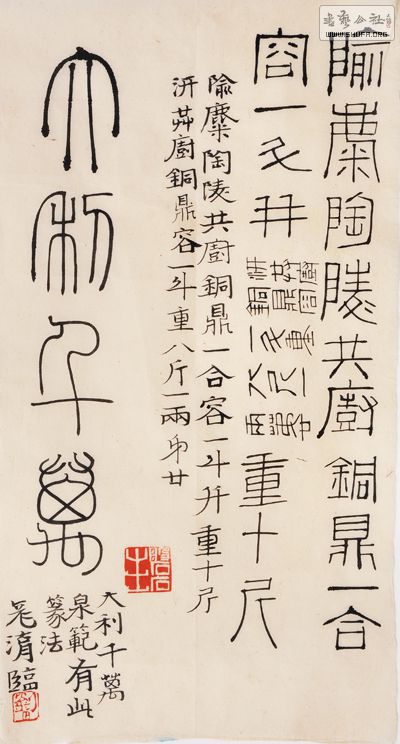 书艺公社
WWW.SHUFA.ORG
隃麋陶陵共廚銅鼎一合
容一斗并
重十斤
隃麋陶陵共廚銅鼎一合容一斗并重十斤
汧共廚銅鼎容一斗重八斤一兩弟廿
大利千萬
大利千萬
泉範有此
篆法
臨